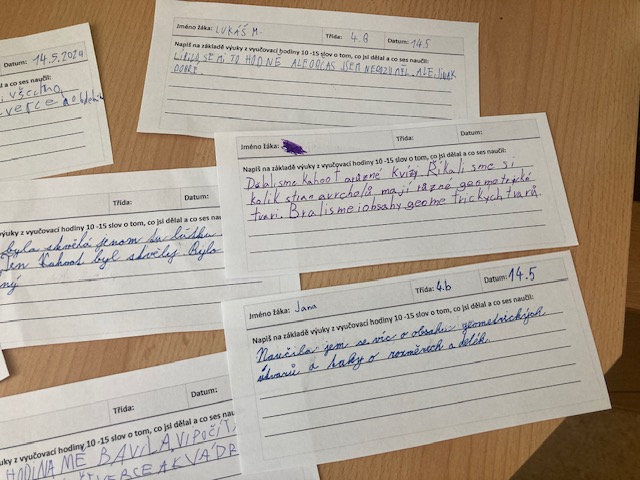 Datum: 14.5.2024
dělal a co ses naučil:
všechno
Jméno žáka: LUKÁŠ M. Třída: 4.B Datum: 14.5
Napiš na základě výuky z vyučovací hodiny 10 -15 slov o tom, co jsi dělal a co ses naučil:
LÍBILO SE MI TO HODNĚ ALE OBČAS JSEM NEROZUMĚL. ALE JINAK
DOBRÉ.
Jméno žáka: Třída: Datum:
Napiš na základě výuky z vyučovací hodiny 10 -15 slov o tom, co jsi dělal a co ses naučil:
Dělali sme Kahoot a různé Kvízy. Říkali sme si
kolik stran a vrcholů mají různé geometrické
tvari. Brali sme i obsahy geometrických tvarů.
Třída: Datum:
z vyučovací hodiny 10 -15 slov o tom, co jsi dělal a co ses nau
byla skvělá jenom tu lítku
ten Kahoot byl skvělej. Bylo
ný
Jméno žáka: Jana Třída: 4.b Datum: 14.5
Napiš na základě výuky z vyučovací hodiny 10 -15 slov o tom, co jsi dělal a co ses naučil:
Naučila jsem se víc o obsahu geometrických
útvarů a taky o rozměrich a délk.
Třída: Datum:
uky z vyučovací hodiny 10 -15 slov o tom, co jsi dělal a co ses nau
HODINA MĚ BAVILA, VIPOČÍT
ČTVERCE A KVÁDR